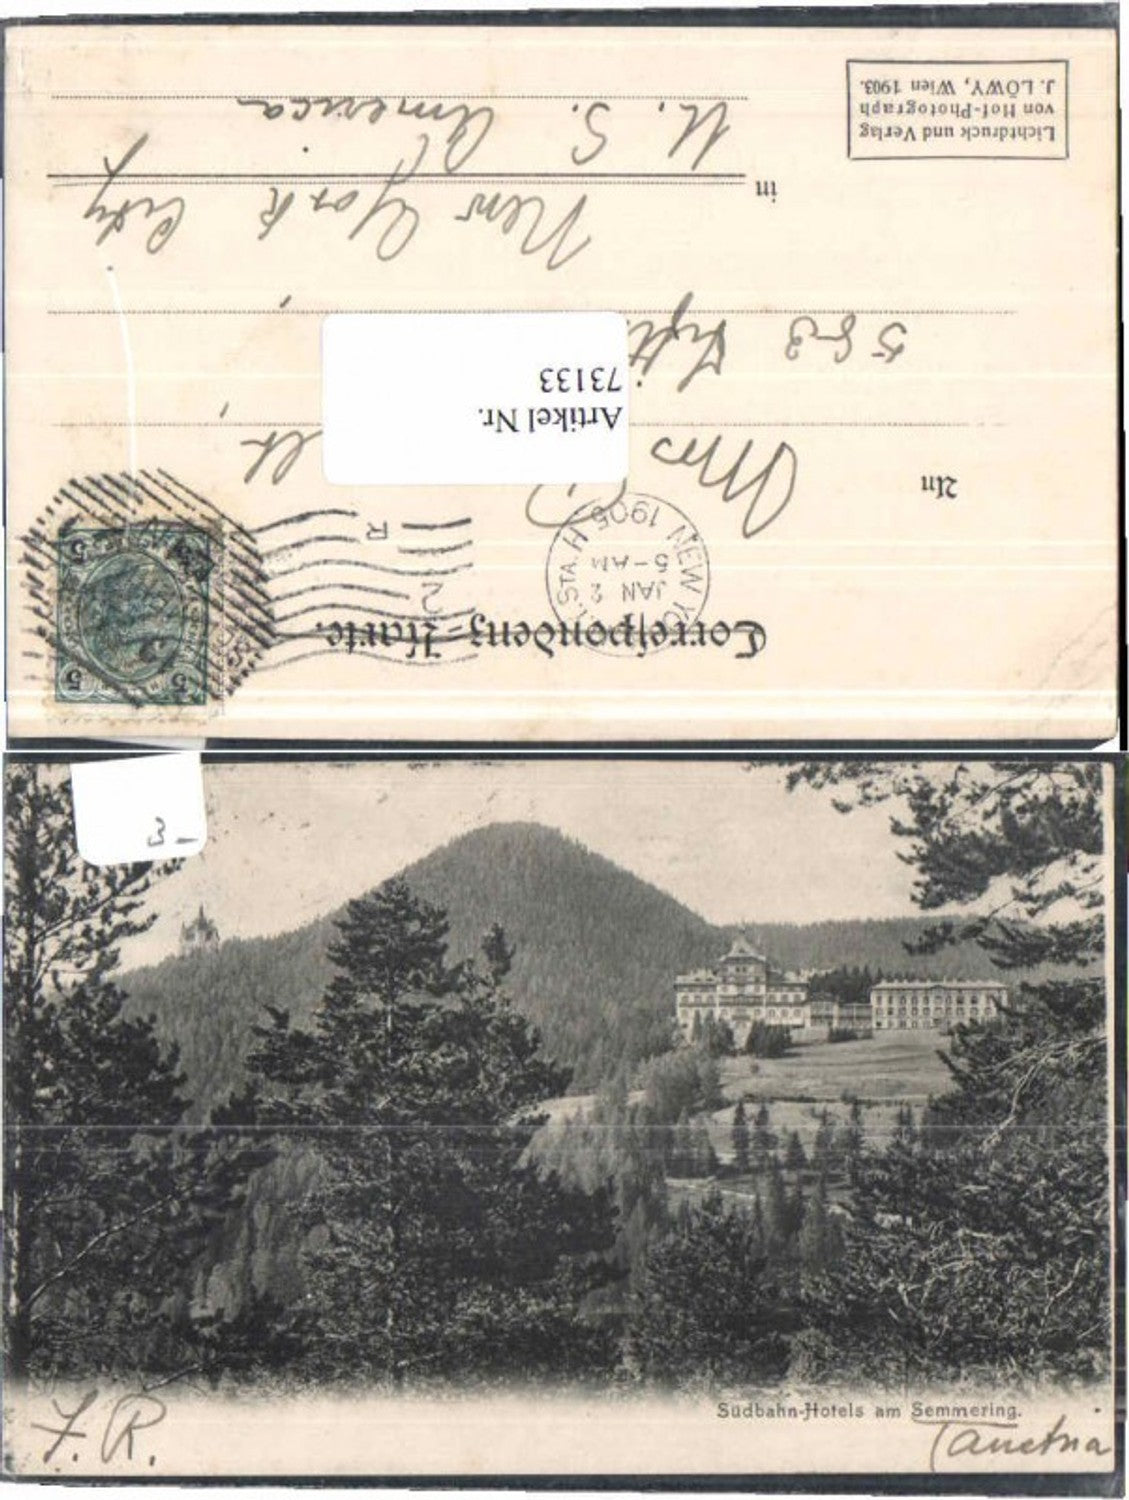 Correspondenz-Karte.
NEW YO
STA. H
JAN 2
5-AM
1906
R
2
5 5
5 5
An
Mrs
Artikel Nr.
73133
583 Fift
in
New York City
U. S. America
Lichtdruck und Verlag
von Hof-Photograph
J. LÖWY, Wien 1903.
Südbahn-Hotels am Semmering.
(Austria
F. R.